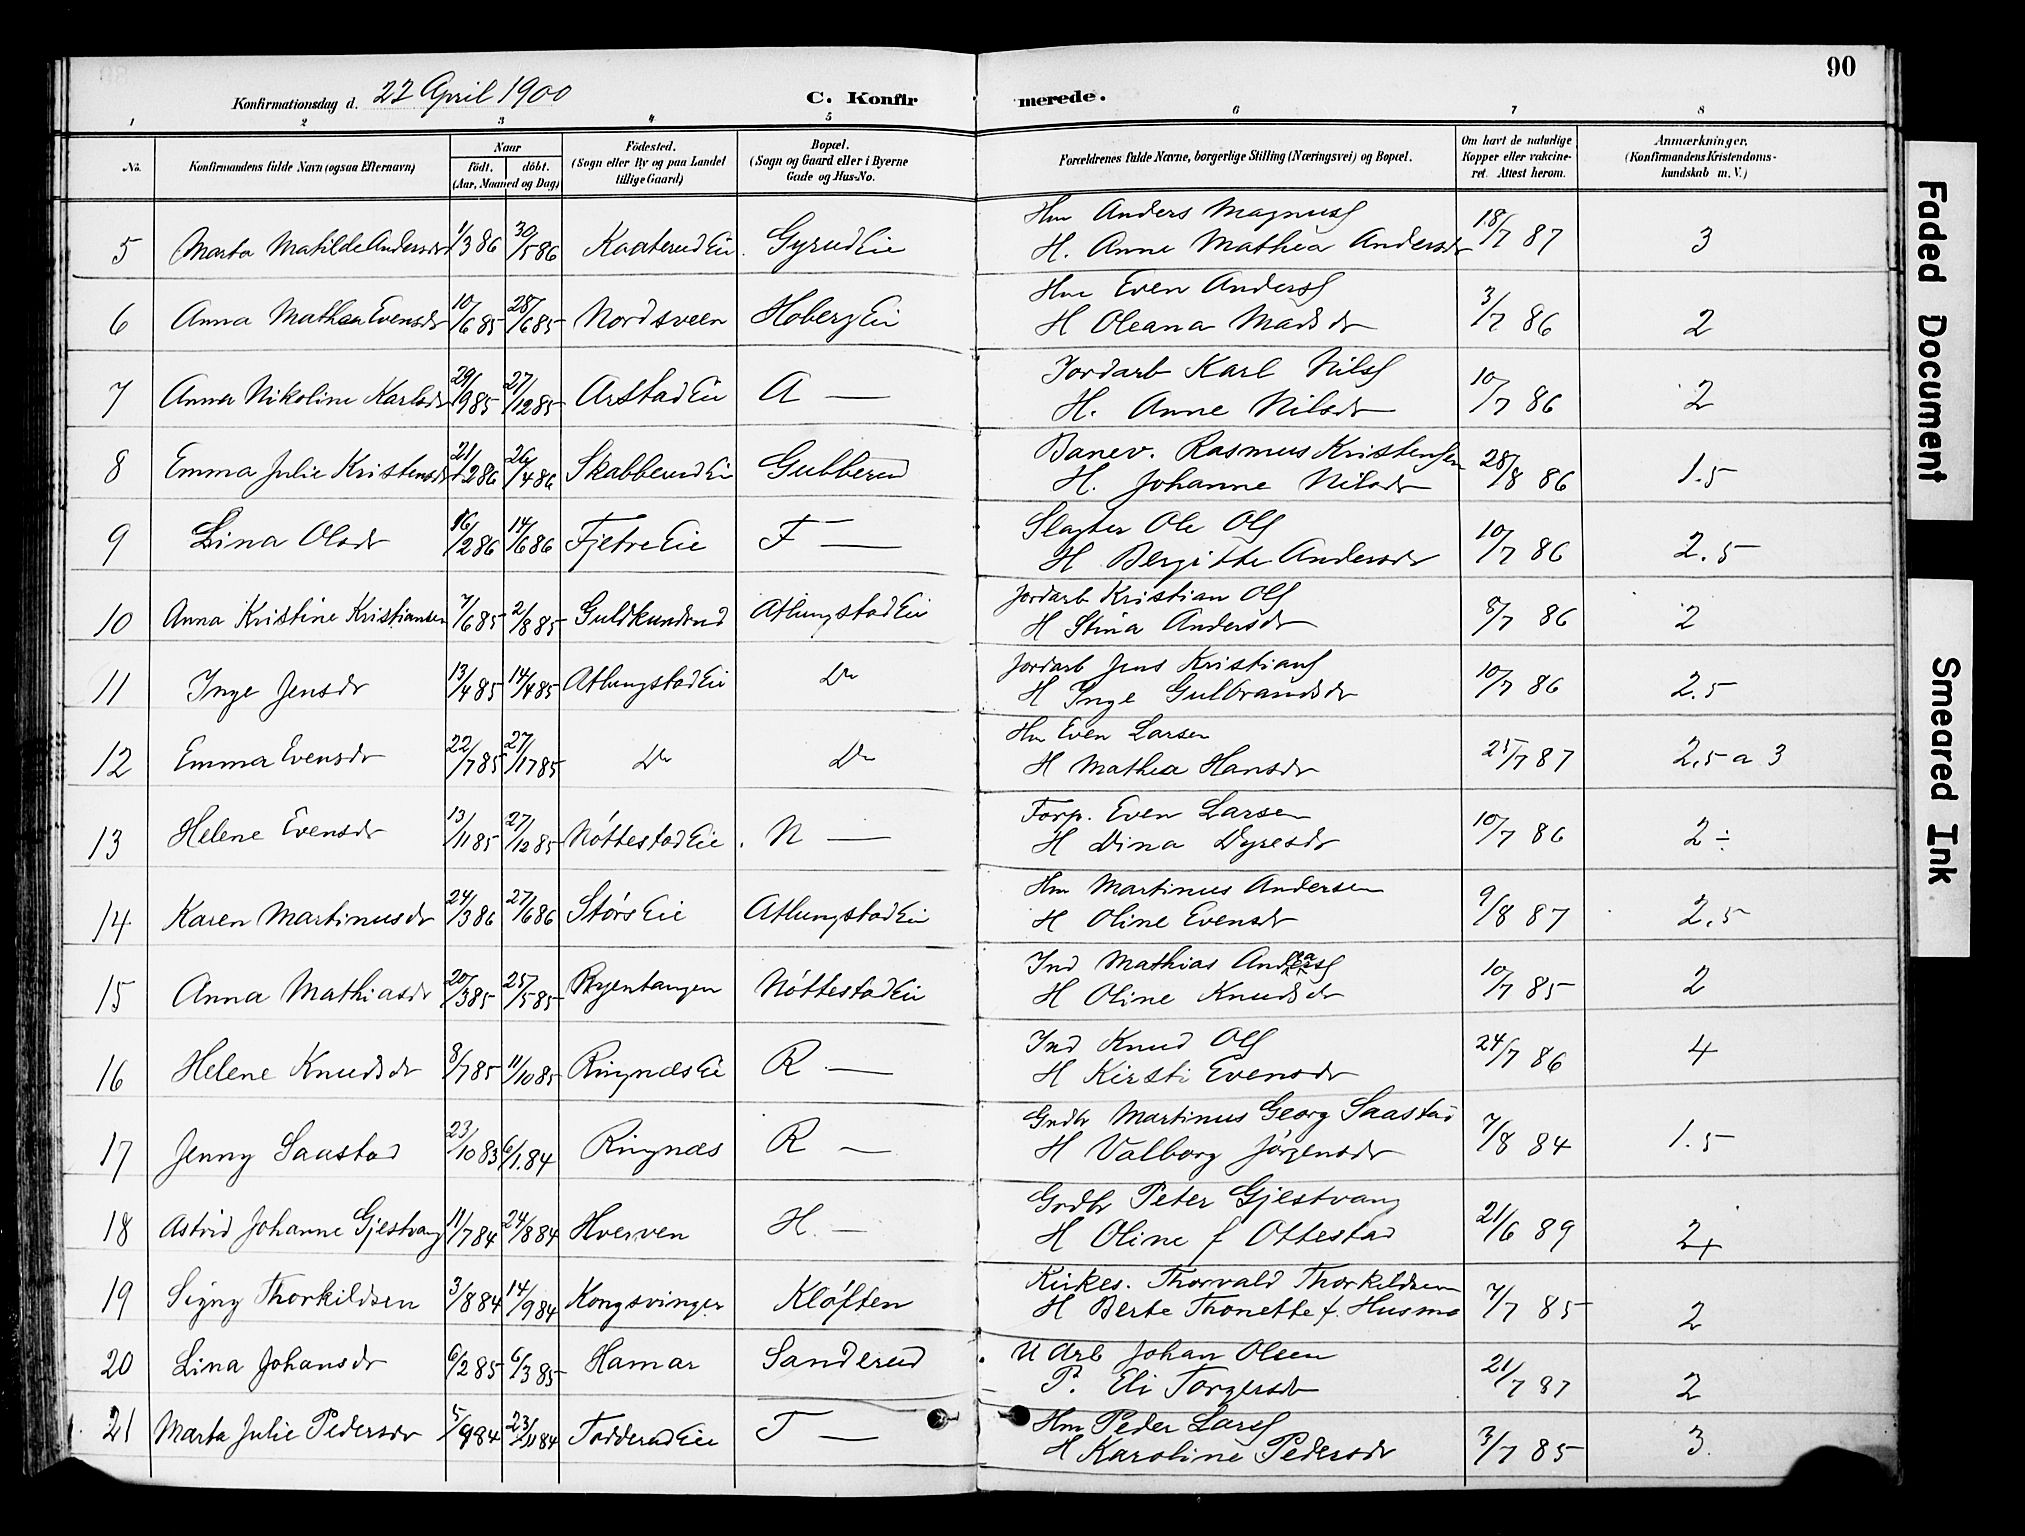 90
Konfirmationsdag d. 22 April 1900
C. Konfir merede.
1 2 3 4 5 6 7 8
No. Konfirmandens fulde Navn (ogsaa Efternavn) Naar født. døbt. (Aar, Maaned og Dag) Fødested. (Sogn eller By og paa Landet tillige Gaard) Bopæl. (Sogn og Gaard eller i Byerne Gade og Hus-No. Forældrenes fulde Navne, borgerlige Stilling (Næringsvei) og Bopæl. Om havt de naturlige Kopper eller vakcineret. Attest herom. Anmærkninger. (Konfirmandens Kristendomskundskab m. V.)
5 Marta Matilde Andersdr 1/3 86 30/5 86 Kaaterud Eie. Gyrud Eie Hm Anders Magnuss 18/7 87 3
H. Anne Mathea Andersdr
6 Anna Mathea Evensdr 10/6 85 28/6 85 Nordsveen Hoberg Eie Hm Even Anders 3/7 86 2
H Oleana Madsdr
7 Anna Nikoline Karlsdr 29/9 85 27/12 85 Arstad Eie A — Jordarb Karl Nils 10/7 86 2
H. Anne Nilsdr
8 Emma Julie Kristensdr 21/2 86 26/4 86 Skabberud Ei Gubberud Banev. Rasmus Kristensen 28/8 86 1.5
H. Johanne Nilsdr
9 Lina Olsdr 16/2 86 14/6 86 Fjetre Eie F — Slagter Ole Ols 10/7 86 2.5
H Bergitte Andersdr
10 Anna Kristine Kristiansen 7/6 85 2/8 85 Guldkundrud Atlungstad Eie Jordarb Kristian Ols 8/7 86 2
H Stina Andersdr
11 Inge Jensdr 13/4 85 14/4 85 Atlungstad Eie Do Jordarb Jens Kristians 10/7 86 2.5
H Inge Gulbrandsdr
12 Emma Evensdr 22/7 85 27/17 85 Do Do Hm Even Larsen 25/7 87 2,5 a 3
H Mathea Hansdr
13 Helene Evensdr 13/11 85 27/12 85 Nøttestad Eie. N — Forp. Even Larsen 10/7 86 2 ÷
H Dina Dyresdr
14 Karen Martinusdr 24/3 86 27/6 86 Størs Eie Atlungstad Eie Hm Martinus Andersen 9/8 87 2,5
H Oline Evensdr
15 Anna Mathiasdr 20/3 85 25/5 85 Ryentangen Nøttestad Eie Ind Mathias Andreas 10/7 85 2
H Oline Knudsdr
16 Helene Knudsdr 8/7 85 11/10 85 Ringnæs Ei R — Ind Knud Ols 24/7 86 4
H Kirsti Evensdr
17 Jenny Saastad 23/10 83 6/1.84 Ringnæs R — Grdbr Martinus Georg Saastad 7/8 84 1.5
H Valborg Jörgensdr
18 Astrid Johanne Gjestvang 11/7 84 24/8 84 Hverven H. — Grdbr Peter Gjestvang 21/6 89 2+
H Oline f Ottestad
19 Signy Thorkildsen 3/8 84 14/9 84 Kongsvinger Kløften Kirkes. Thorvald Thorkildsen 7/7 85 2
H Berte Thonette f. Husmo
20 Lina Johansdr 6/2 85 6/3 85 Hamar Sanderud U Arb Johan Olsen 21/7 87 2
P. Eli Torgersdr
21 Marta Julie Pedersdr 5/9 84 23/11 84 Tadderud Eie T — Hm Peder Lars 3/7 85 3
H Karoline Pedersdr
Faded Document
Smeared Ink